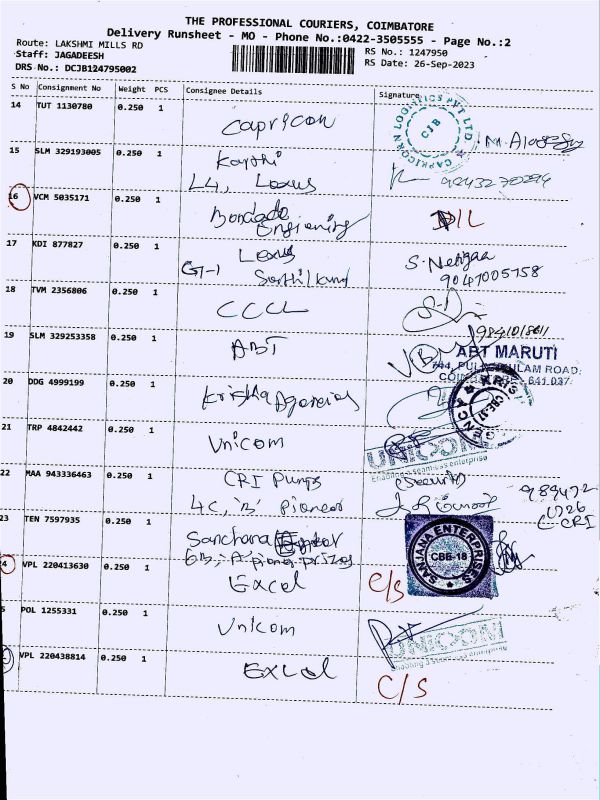 THE PROFESSIONAL COURIERS, COIMBATORE
Delivery Runsheet - MO - Phone No.:0422-3505555 - Page No.:2
Route: LAKSHMI MILLS RD
RS No.: 1247950
Staff: JAGADEESH
RS Date: 26-Sep-2023
DRS No.: DCJB124795002
S No Consignment No Weight PCS Consignee Details Signature
14 TUT 1130780 0.250 1 Capricon
CAPRICORN LOGISTICS PVT LTD CJB
15 SLM 329193005 0.250 1 Karthi
L4, Lexus
16 VCM 5035171 0.250 1
17 KDI 877827 0.250 1 Lexus
G-1
9047005758
18 TVM 2356806 0.250 1 CCCL
19 SLM 329253358 0.250 1 ABT
ABT MARUTI
COIMBATORE - 641 037
20 DDG 4999199 0.250 1 Krishna Agencies
21 TRP 4842442 0.250 1 Unicom
UNICOM
Enabling a seamless enterprise
22 MAA 943336463 0.250 1 CRI Pumps
4C, 'B' Pioneer
(Security)
CRI
23 TEN 7597935 0.250 1 Sanchana
SANJANA ENTERPRISES
CBE-18
24 VPL 220413630 0.250 1 Excel C/S
POL 1255331 0.250 1 Unicom
UNICOM
Enabling a seamless enterprise
VPL 220438814 0.250 1 Excel C/S